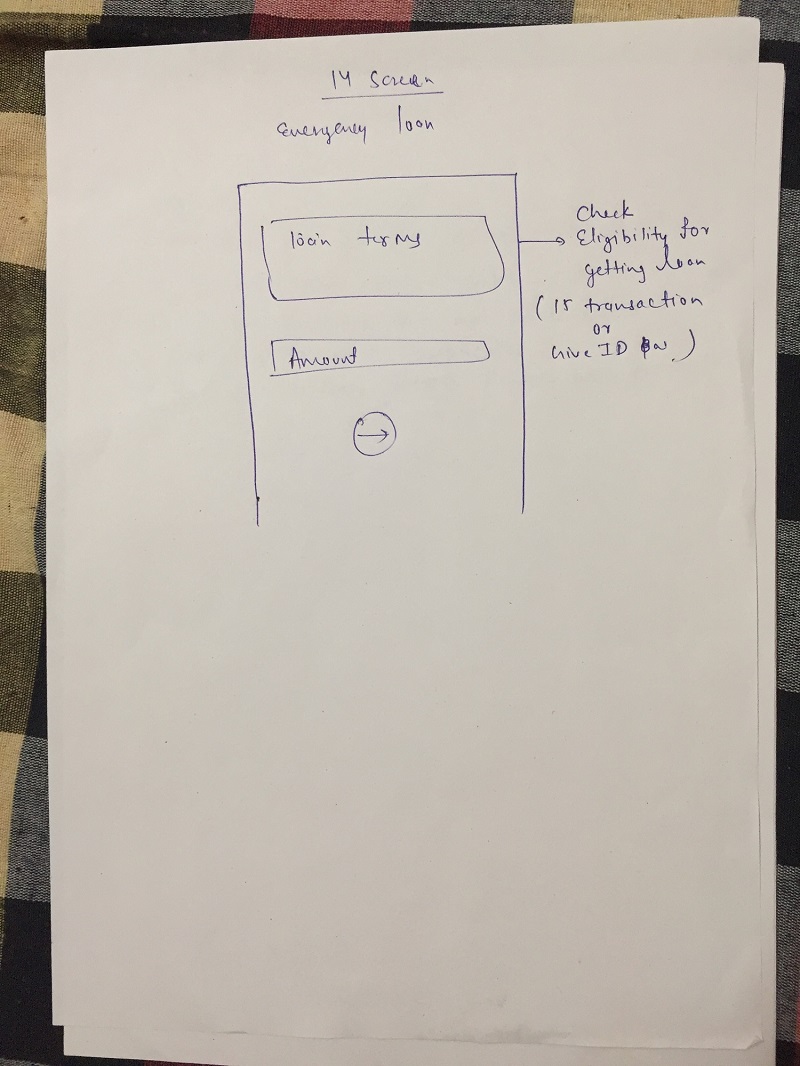 14 Screen
Emergency loan
loan terms
Amount
Check
Eligibility for
getting loan
( 15 transaction
or
Give ID )